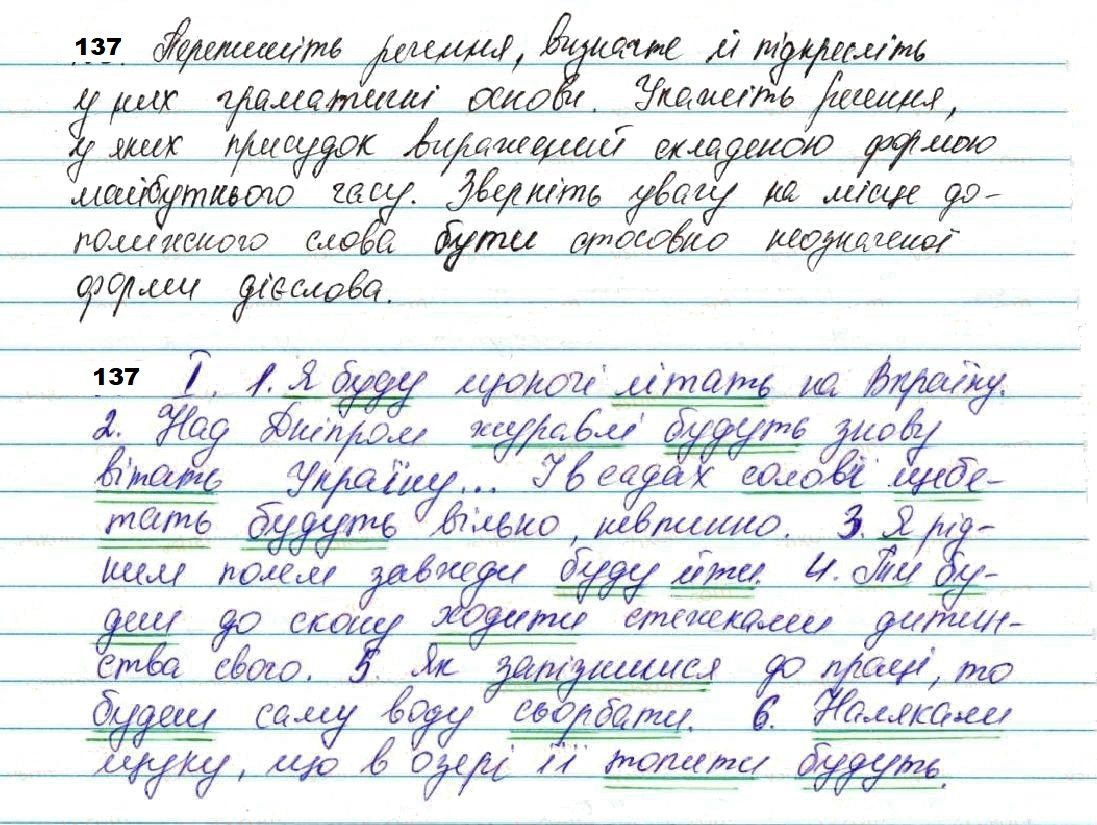 137 Перепишіть речення, визначте й підкресліть
у них граматичні основи. Укажіть речення,
у яких присудок виражений складеною формою
майбутнього часу. Зверніть увагу на місце до-
поміжного слова бути стосовно неозначеної
форми дієслова.
137 I. 1. Я буду щоночі літать на Вкраїну.
2. Над Дніпром журавлі будуть знову
вітать Україну... І в садах солов'ї щебе-
тать будуть вільно, невпинно. 3. Я рід-
ним полем завжди буду йти. 4. Ти бу-
деш до скону ходити стежками дитин-
ства свого. 5. Як запізнишся до праці, то
будеш саму воду сьорбати. 6. Налякали
щуку, що в озері її топити будуть.